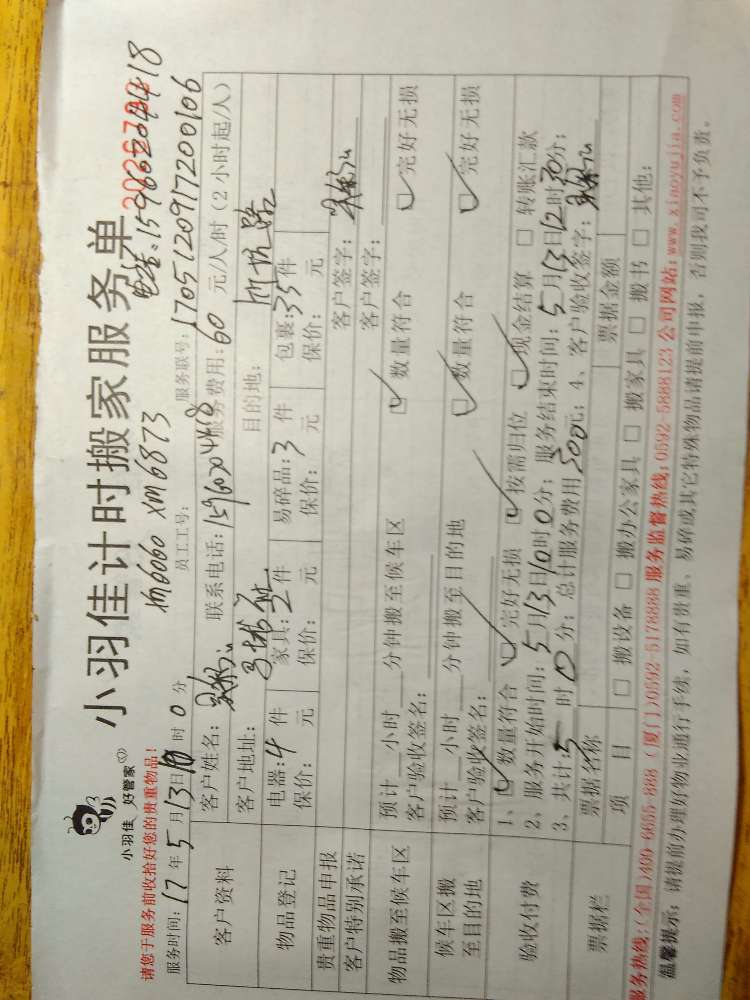 小羽佳计时搬家服务单
小羽佳 好管家
请您于服务前收拾好您的贵重物品!
xm6060 xm6873
服务时间: 17 年 5 月 13 日 时 0 分 员工工号: 服务联号: 1705120917200106
客户资料
客户姓名: 联系电话: 服务费用: 60 元/人/时 (2小时起/人)
客户地址: 目的地:
物品登记
电器: 4 件 家具: 2 件 易碎品: 3 件 包裹: 35 件
保价: 元 保价: 元 保价: 元 保价: 元
贵重物品申报 客户签字:
客户特别承诺 客户签字:
物品搬至候车区
预计 小时 分钟搬至候车区 数量符合 完好无损
客户验收签名:
候车区搬至目的地
预计 小时 分钟搬至目的地 数量符合 完好无损
客户验收签名:
验收付费
1、数量符合 完好无损 按需归位 现金结算 转账汇款
2、服务开始时间: 5 月 13 日 10 时 0 分; 服务结束时间: 5 月 13 日 12 时 30 分;
3、共计: 5 时 0 分; 总计服务费用 300 元; 4、客户验收签字:
票据栏
票据名称 票据金额
项目 搬设备 搬办公家具 搬家具 搬书 其他:
服务热线: (全国)400-6655-888 (厦门)0592-5178888 服务监督热线: 0592-5888123 公司网站: www.xiaoyujia.com
温馨提示: 请提前办理好物业通行手续, 如有贵重、易碎或其它特殊物品请提前申报, 否则我司不予负责。